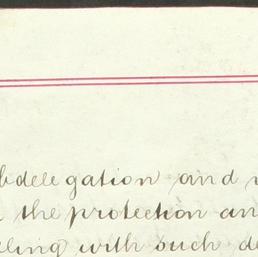 delegation and
the protection an
ling with such de